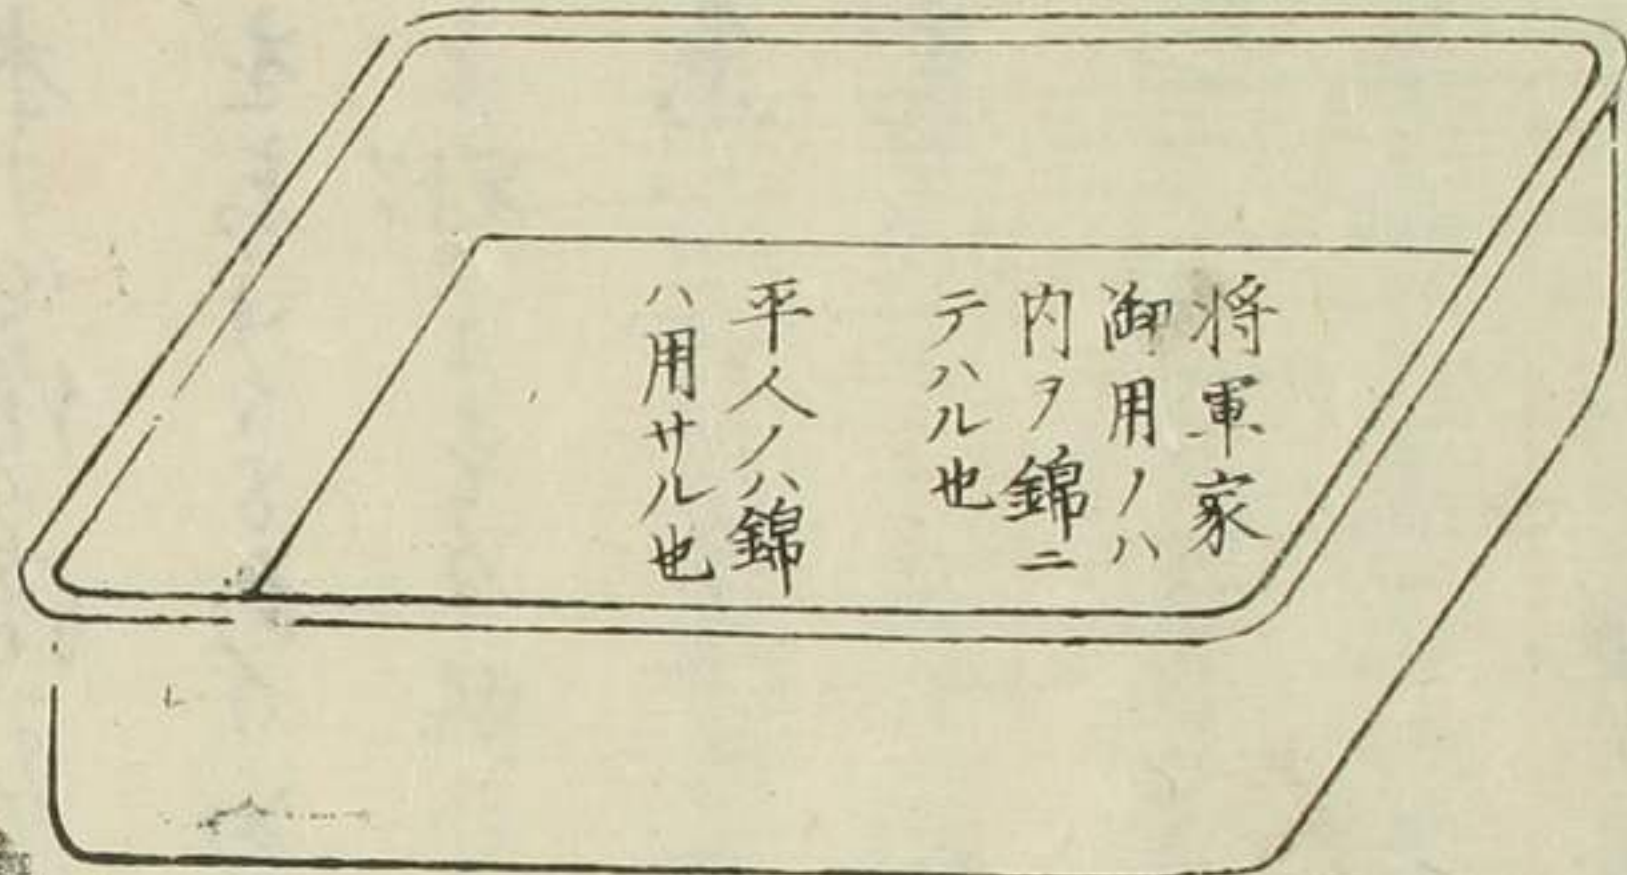 将軍家
御用ノハ
内ヲ錦ニ
テハル也
平人ノハ錦
ハ用サル也